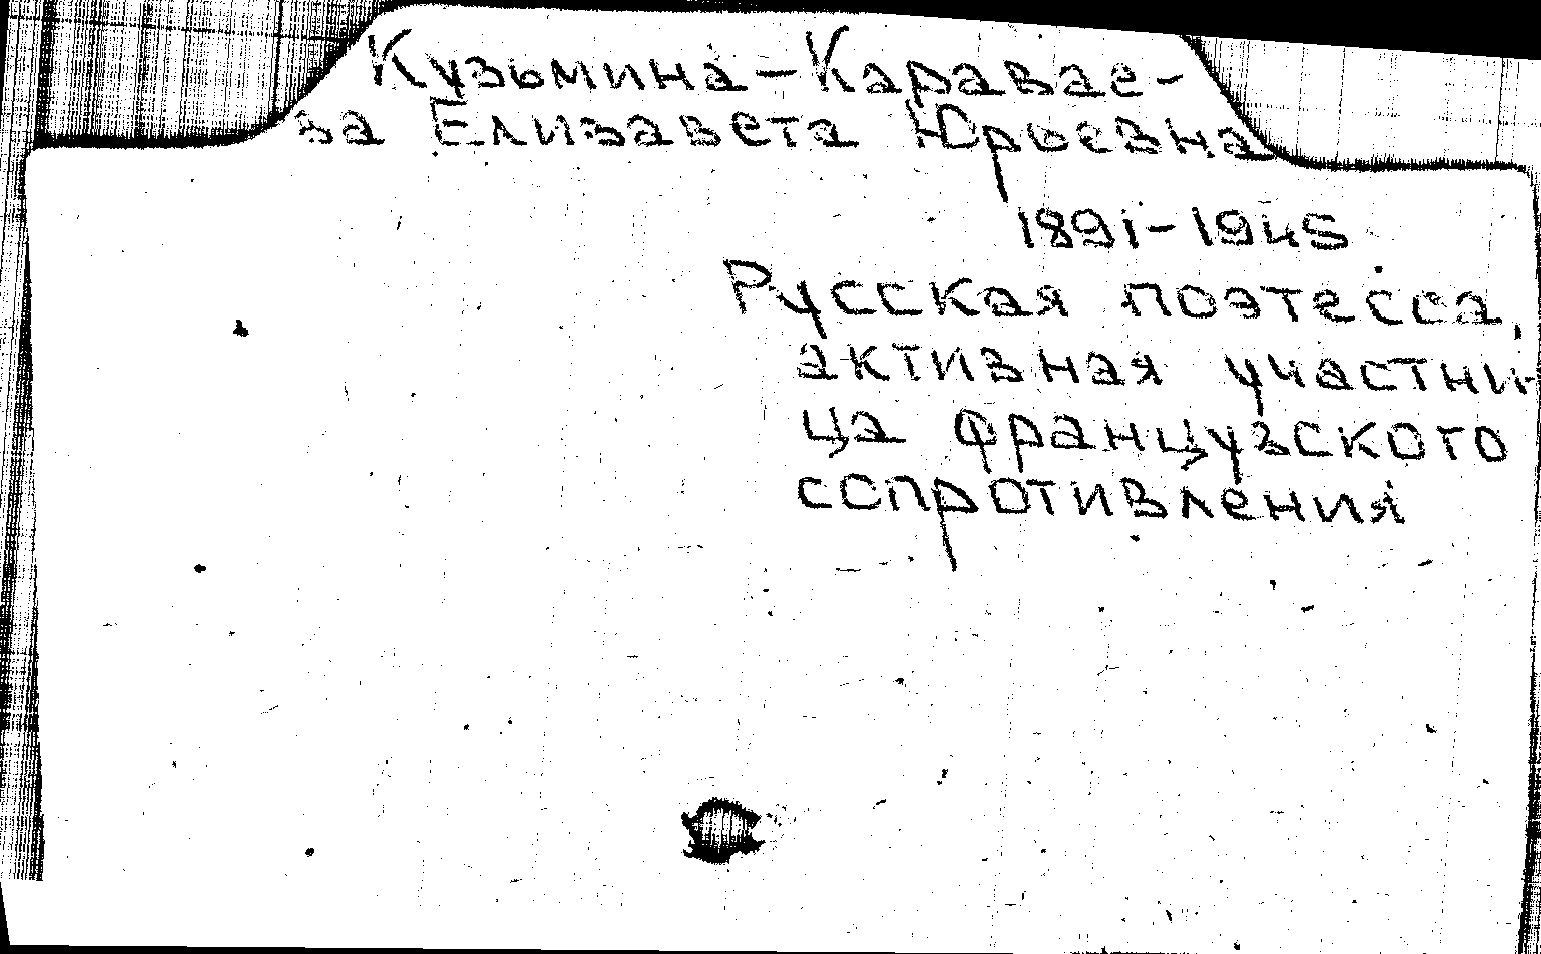 Кузьмина-Каравае-
ва Елизавета Юрьевна
1891-1945
Русская поэтесса,
активная участни-
ца французского
сопротивления